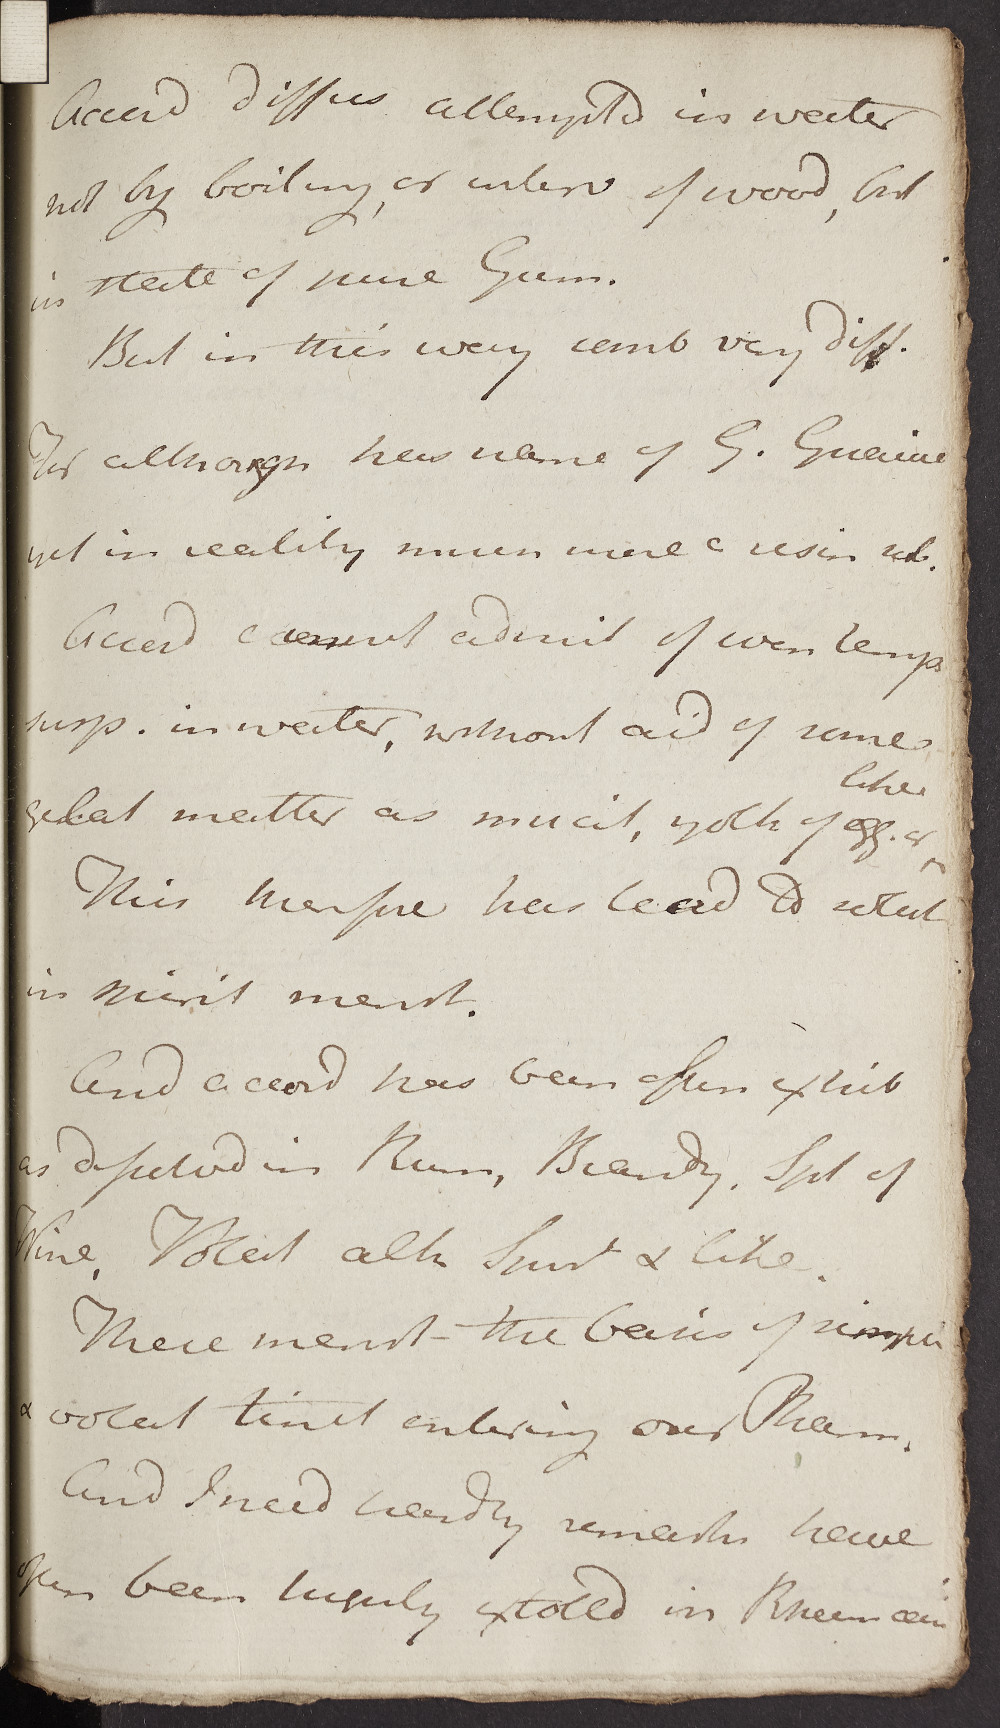 Accord diffus attempted in water
not by boiling, or infus of wood, but
in state of pure Gum.
But in this way comb very diff.
For although has name of G. Guaiac
yet in reality much more a resin sub.
Accord cannot admit of even temp
susp. in water, without aid of some
like
gelat matter as mucil, yolk of egg. or
This therefore has lead to solut
in spirit menst.
And accord has been often exhib
as dissolved in Rum, Brandy, Spt of
Wine, Volat alk Spirit & like.
These menst - the basis of simple
& volat tinct entering our Pharm.
And I need hardly remark have
often been highly extolled in Rheum